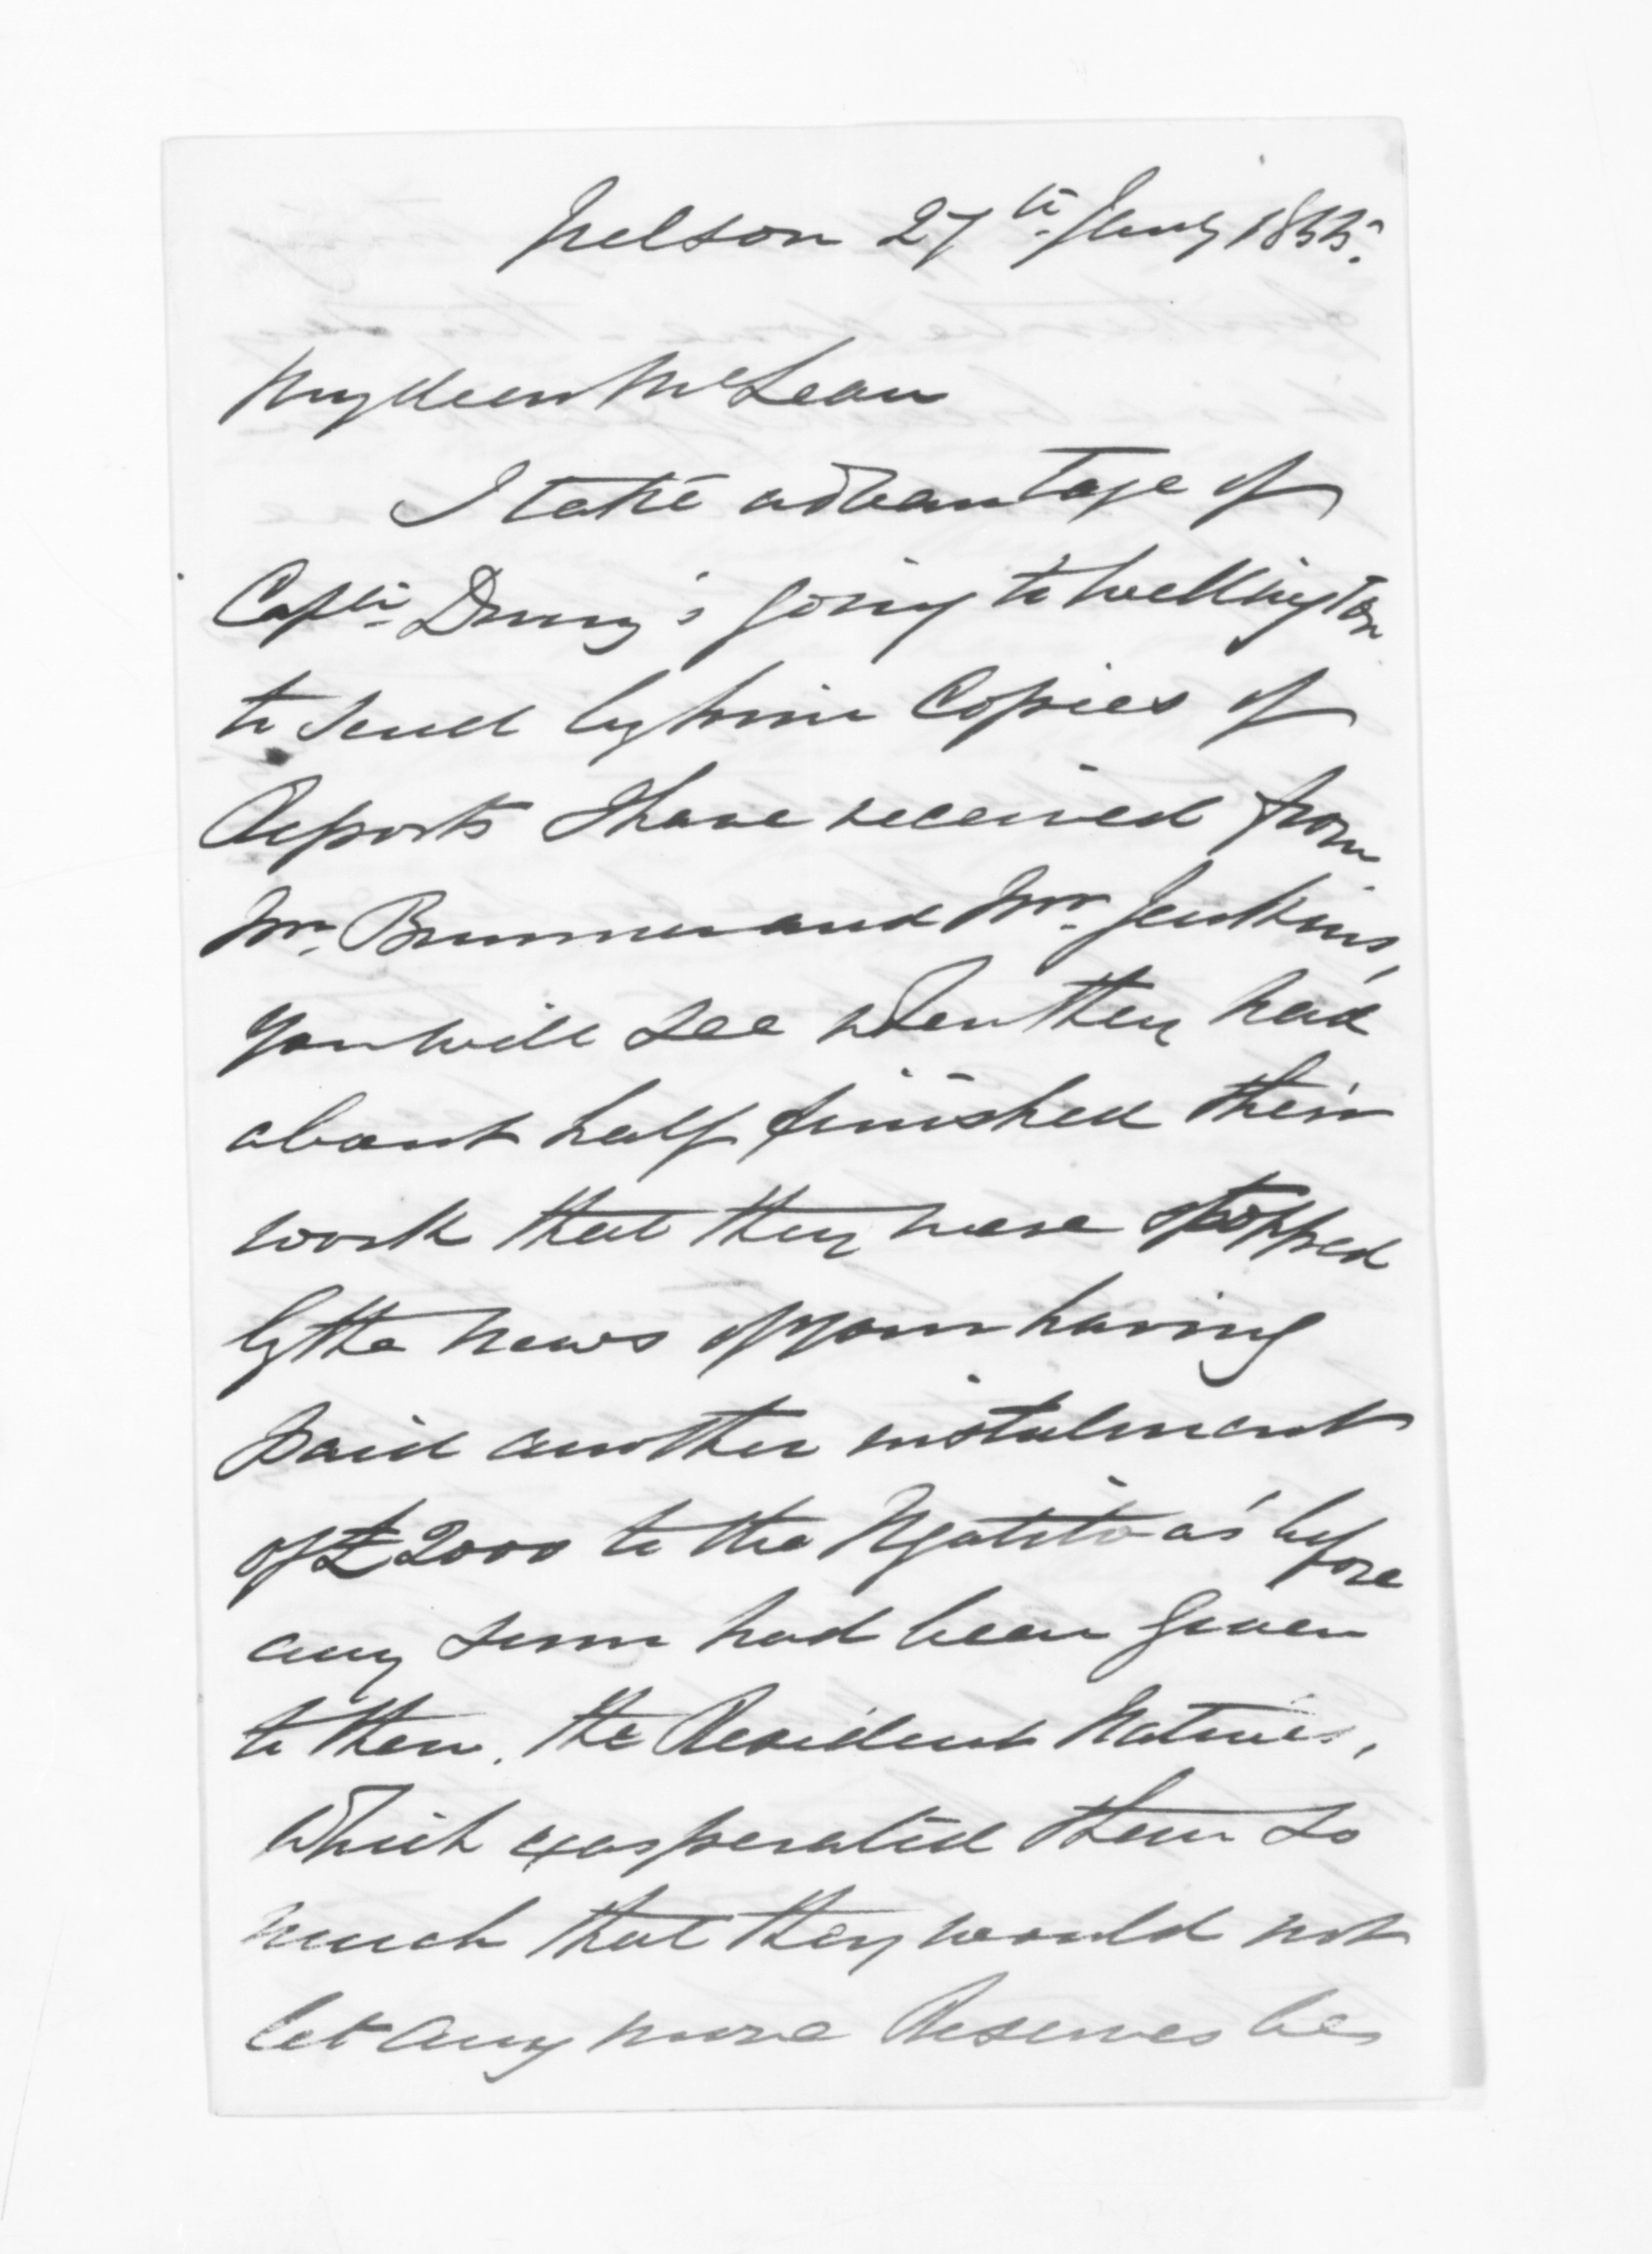 Nelson 27th Jany 1855.
My dear McLean
I take advantage of
Captn Drury's going to Wellington
to send by him Copies of
Reports I have received from
Mr. Brunner and Mr. Jenkins,
you will see when they had
about half finished their
work that they were stopped
by the news of your having
paid another instalment
of £2000 to the Ngatitoas before
any sum had been given
to them. the Resident Natives,
which exasperated them so
much that they would not
let any more Reserves be